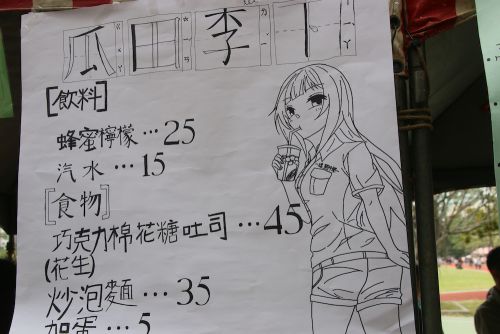 瓜田李下
[飲料]
蜂蜜檸檬…25
汽水…15
[食物]
巧克力棉花糖吐司…45
(花生)
炒泡麵…35
加蛋…5